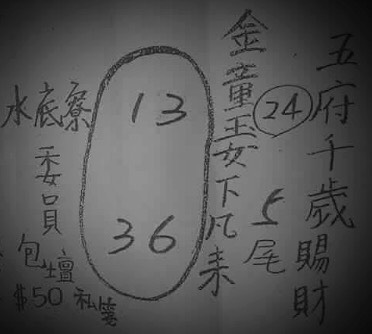 五府千歲賜財
24
5尾
金童玉女下凡來
13
36
水底寮
委員
包壇
$50 私箋